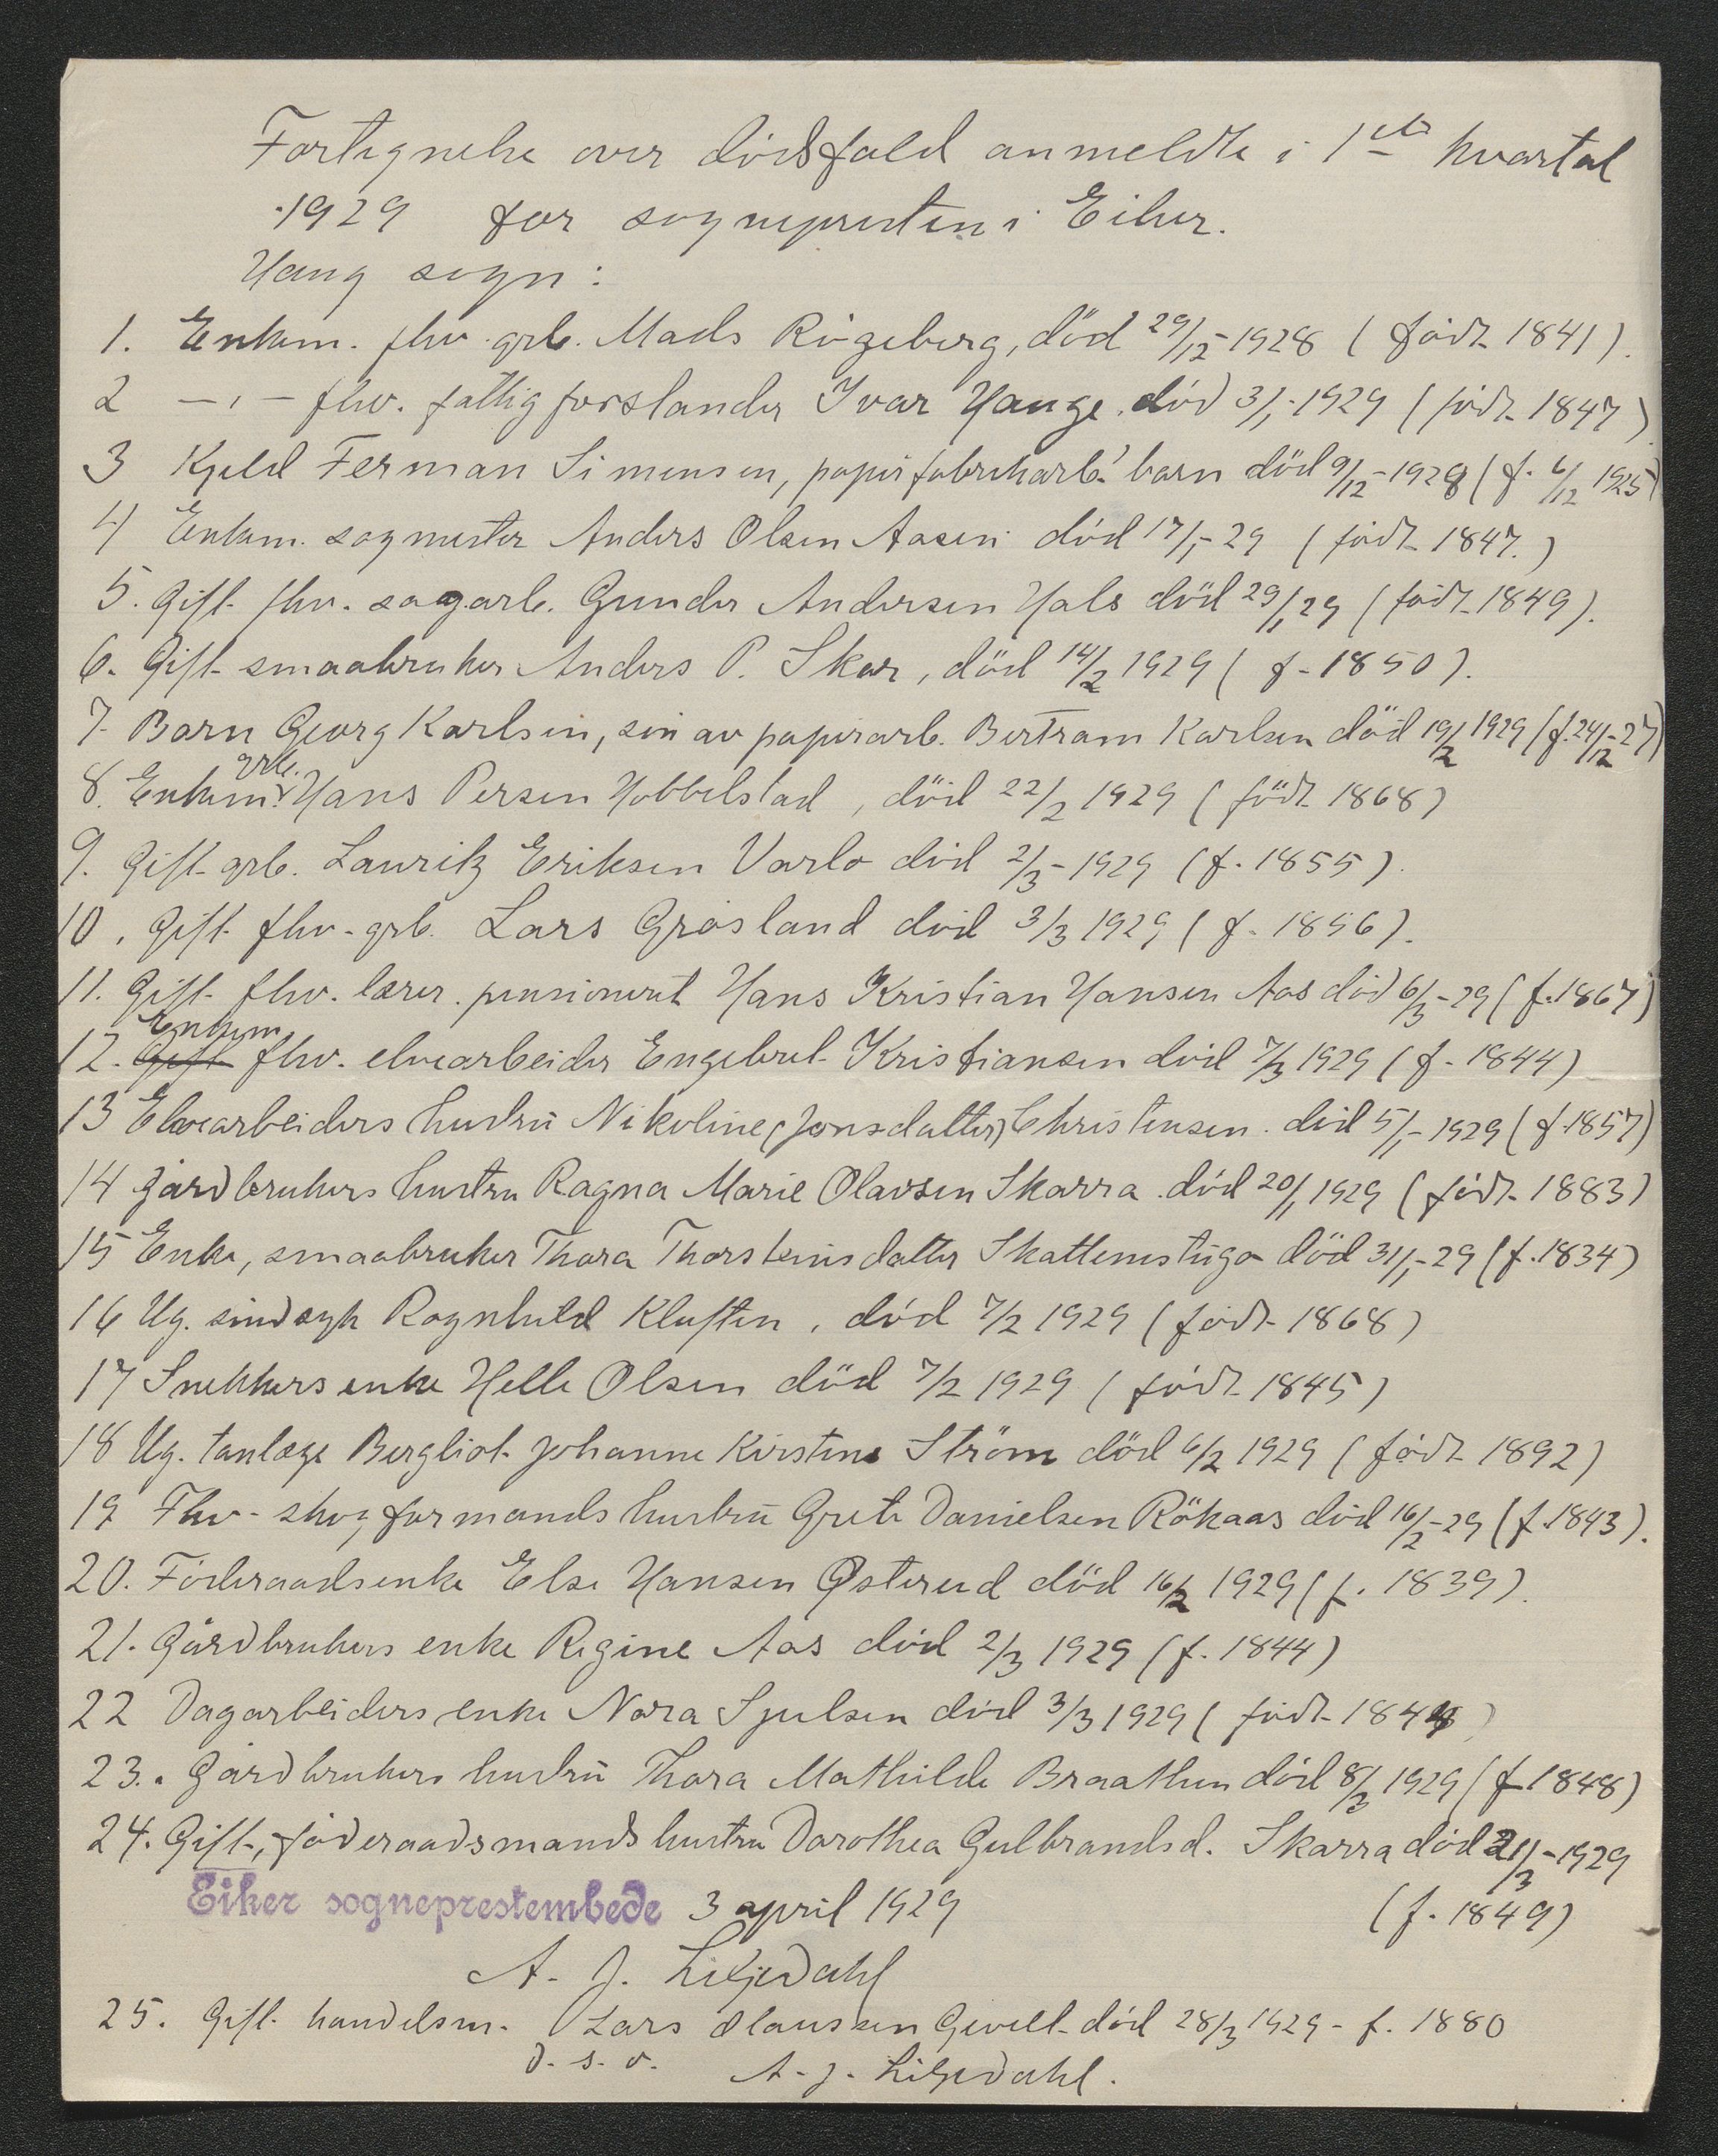 Fortegnelse over dödsfald anmeldte i 1ste kvartal
1929 for sognepresten i Eiker.
Haug sogn:
1. Enkem. fhv. grb. Mads Rögeberg, död 29/12-1928 (födt 1841).
2 —„— fhv. fattigforstander Ivar Hauge. död 3/1-1929 (födt 1847)
3 Kjeld Ferman Simensen, papirfabrikarb.' barn död 9/12-1928 (f. 6/12 1925)
4 Enkem. sagmester Anders Olsen Aasen död 17/1-29 (födt 1847.)
5. Gift fhv. sagarb. Gunder Andersen Hals död 29/1 29 (födt 1849).
6. Gift smaabruker Anders P. Skar, död 14/2 1929 (f- 1850).
7. Barn Georg Karlsen, sön av papirarb. Bertram Karlsen död 19/2 1929 (f. 24/12-27)
8. Enkem. grb. Hans Persen Hobbelstad, död 22/2 1929 (födt 1868)
9. Gift grb. Lauritz Eriksen Varlo död 2/3-1929 (f. 1855).
10. Gift fhv. grb. Lars Gråsland död 3/3 1929 (f. 1856).
11. Gift fhv. lærer. pensionert Hans Kristian Hansen Aas död 6/3-29 (f. 1867)
12. Gift Enkem fhv. elvearbeider Engebret Kristiansen död 7/3 1929 (f. 1844)
13 Elvearbeiders hustru Nikoline (Jonsdatter) Christensen. död 5/1-1929 (f. 1857)
14 Gårdbrukers hustru Ragna Marie Olavsen Skarra. död 20/1 1929 (födt 1883)
15 Enke, smaabruker Thora Thorsteinsdatter Skattemstuga död 31/1-29 (f. 1834)
16 Ug. sindsyk Ragnhild Kluften, död 7/2 1929 (födt 1868)
17 Snekkers enke Helle Olsen död 7/2 1929 (födt 1845)
18 Ug. tanlæge Bergliot Johanne Kirstine Ström död 6/2 1929 (födt 1892)
19 Fhv- skogformands hustru Grete Danielsen Rökaas död 16/2-29 (f. 1843).
20. Föderaadsenke Else Hansen Østerud död 16/2 1929 (f. 1839).
21. Gårdbrukers enke Regine Aas död 2/3 1929 (f. 1844)
22 Dagarbeiders enke Nora Sjulsen död 3/3 1929 (födt 1848)
23. Gårdbrukers hustru Thora Mathilde Braathen död 8/3 1929 (f 1848)
24. Gift, föderaadsmands hustru Dorothea Gulbrandsd. Skarra död 21/3-1929
Eiker sogneprestembede 3 april 1929 (f. 1849)
A. J. Liljedahl
25. Gift handelsm. Lars Olaussen Gevelt död 28/3 1929 - f. 1880
d. s. o. A. J. Liljedahl.